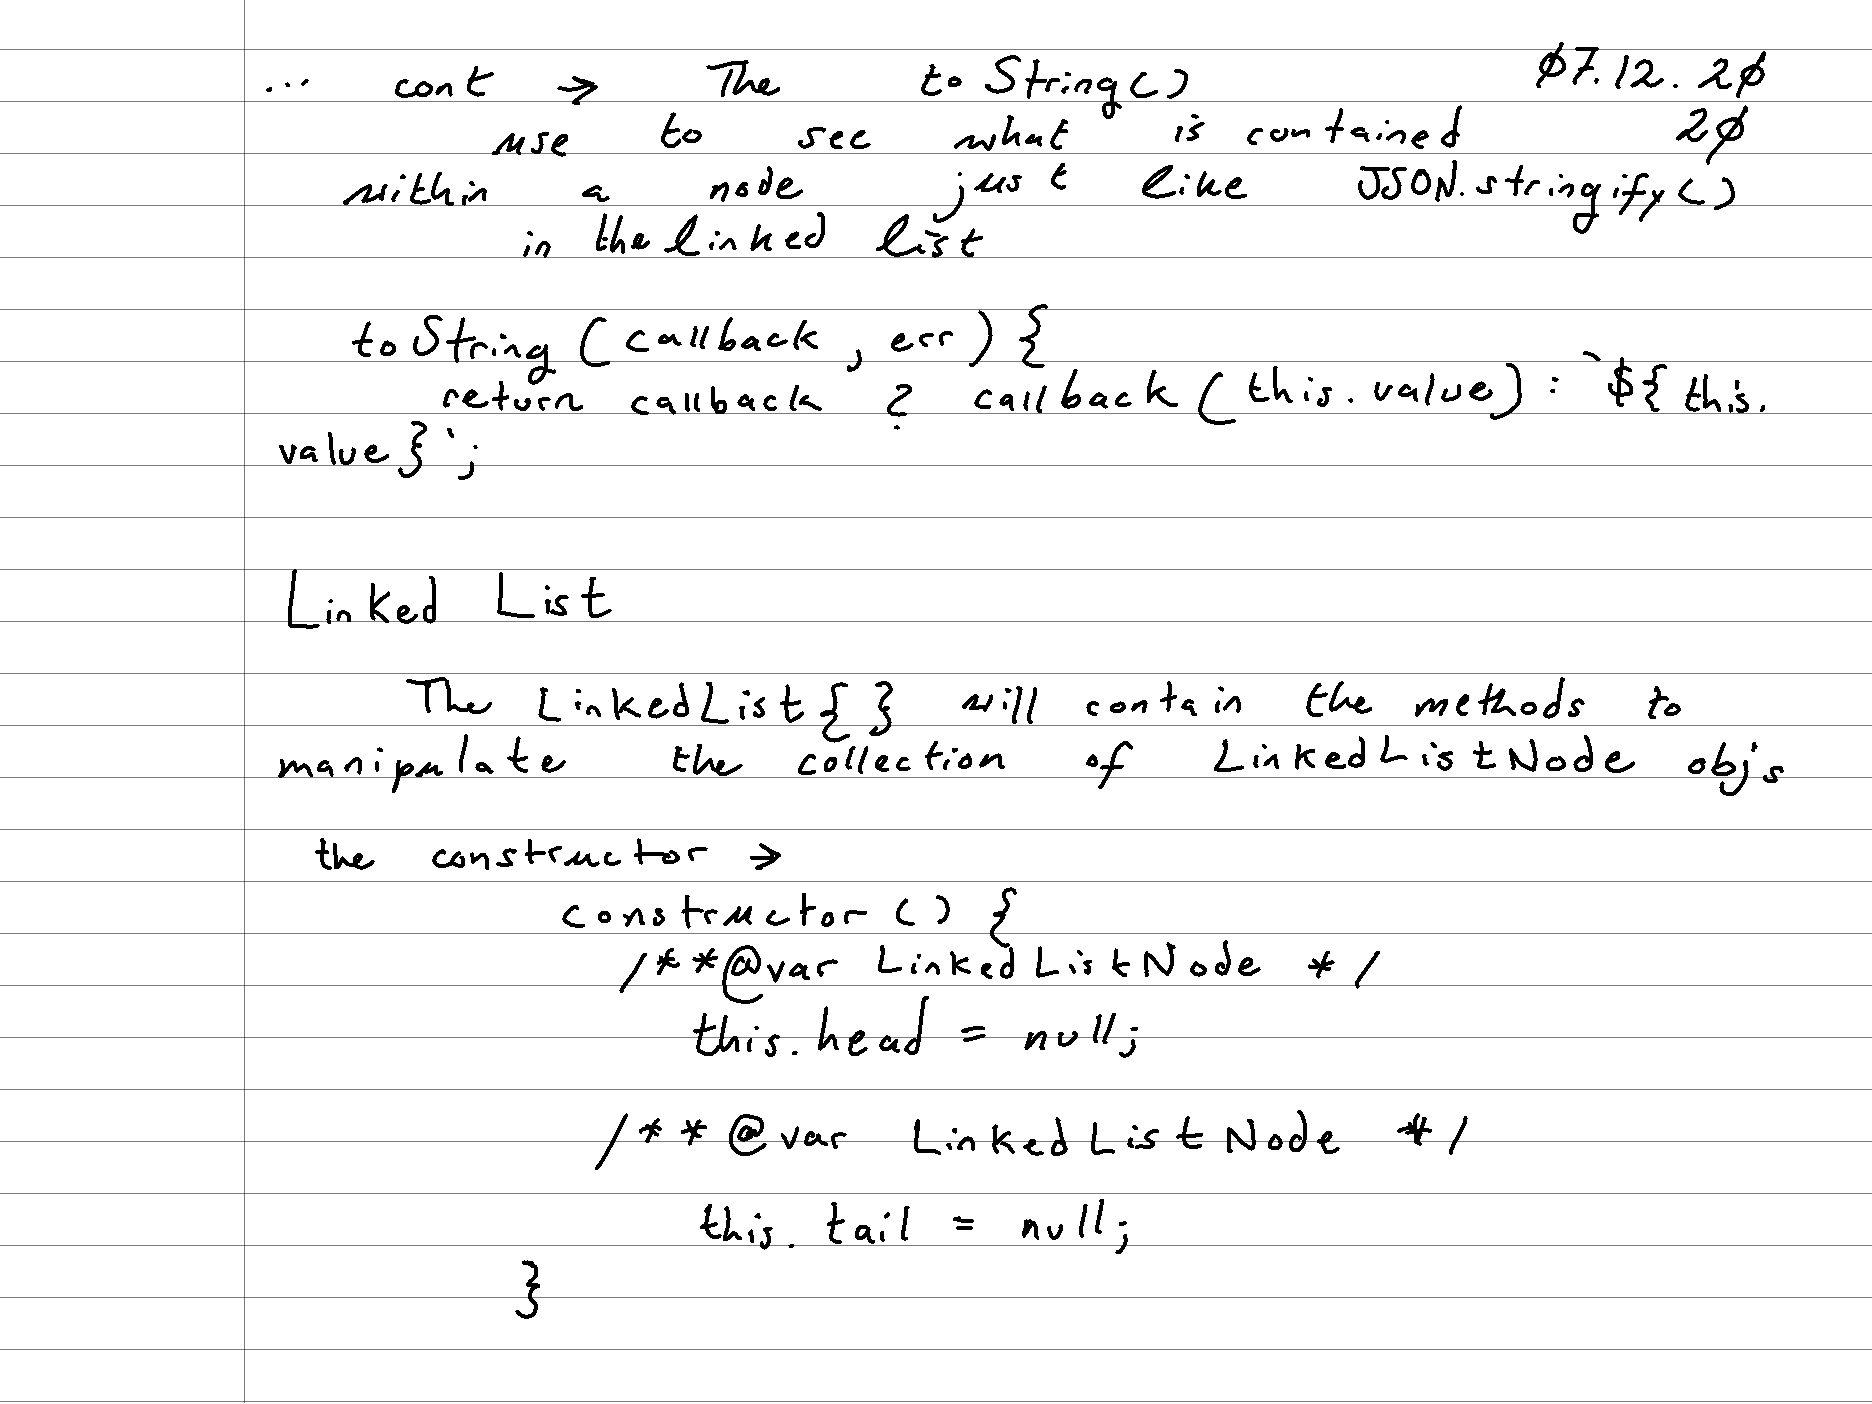 ... cont → The toString() 07.12.20
use to see what is contained 20
within a node just like JSON.stringify()
in the linked list
toString(callback, err) {
return callback ? callback(this.value) : `${this.
value}`;
Linked List
The LinkedList{ } will contain the methods to
manipulate the collection of LinkedListNode obj's
the constructor →
constructor() {
/**@var LinkedListNode */
this.head = null;
/**@var LinkedListNode */
this.tail = null;
}